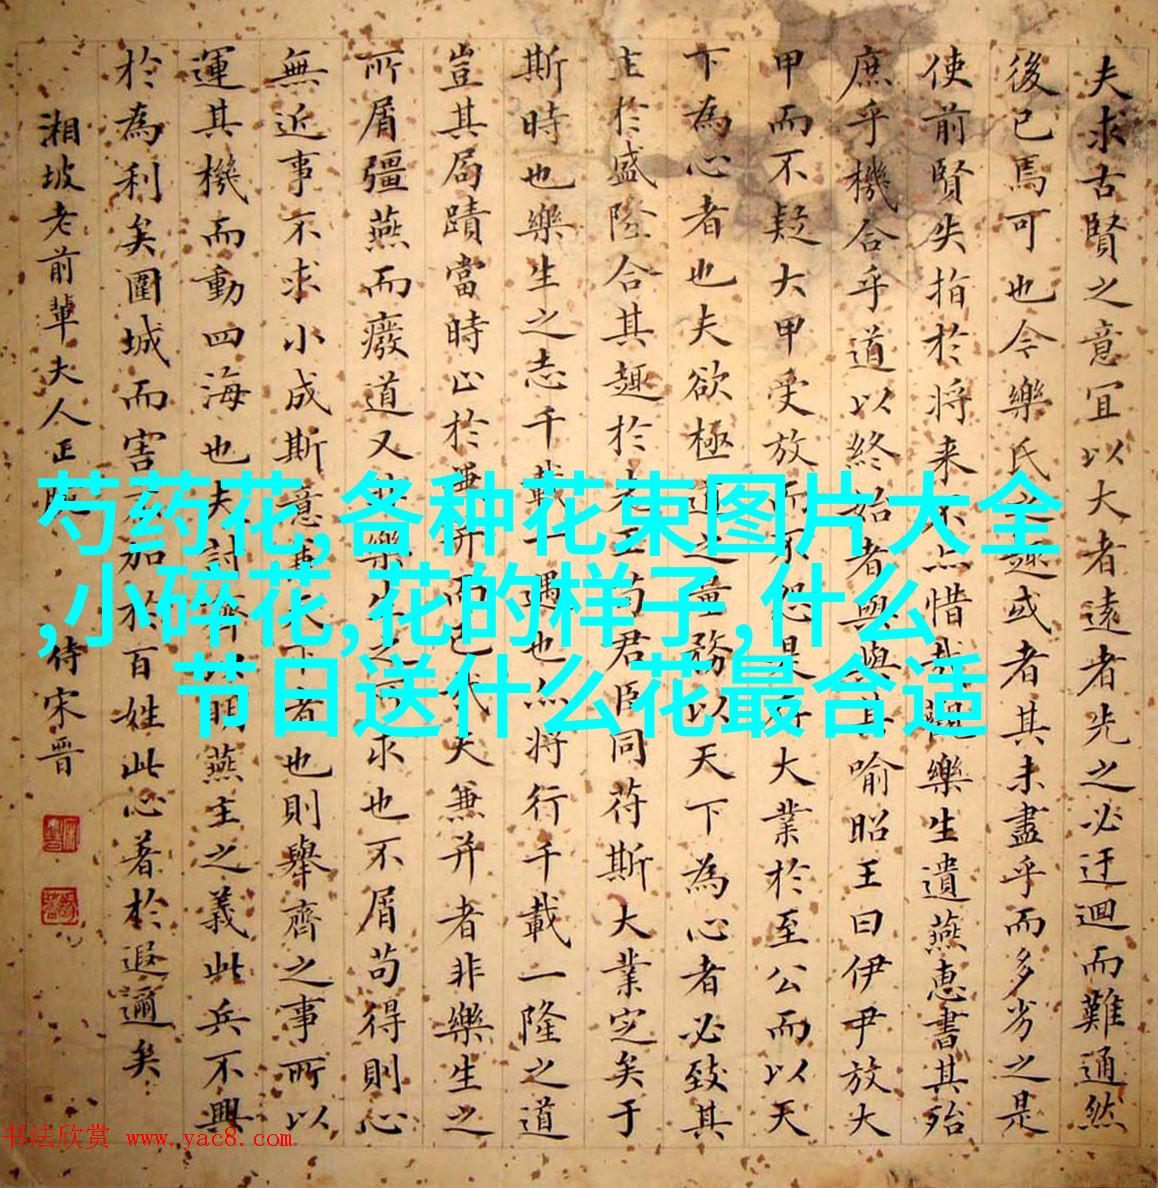 夫求古賢之意宜以大者遠者先之必迂迴而難通然
後已焉可也今樂氏之趣或者其未盡乎而多劣之是
使前賢失指於将来不亦惜哉觀樂生遺燕惠書其殆
庶乎機合乎道以終始者與與其喻昭王曰伊尹放大
甲而不疑大甲受放而不怨是存大業於至公而以天
下為心者也夫欲極道之量務以天下為心者必致其
主於盛隆合其趣於先王苟君臣同苻斯大業定矣于
斯時也樂生之志千載一遇也亦將行千載一隆之道
豈其局蹟當時止於兼并而已哉夫兼并者非樂生之
所屑彊燕而廢道又非樂生之所求也不屑苟得則心
無近事不求小成斯意兼天下者也則舉齊之事所以
運其機而動四海也夫討齊以明燕主之義此兵不興
於為利矣圍城而害不加於百姓此心著於遐邇矣
湘坡老前輩夫人正
侍宋晋
芍药花,各种花束图片大全
,小碎花,花的样子,什么
节日送什么花最合适
书法欣赏 www.yac8.com